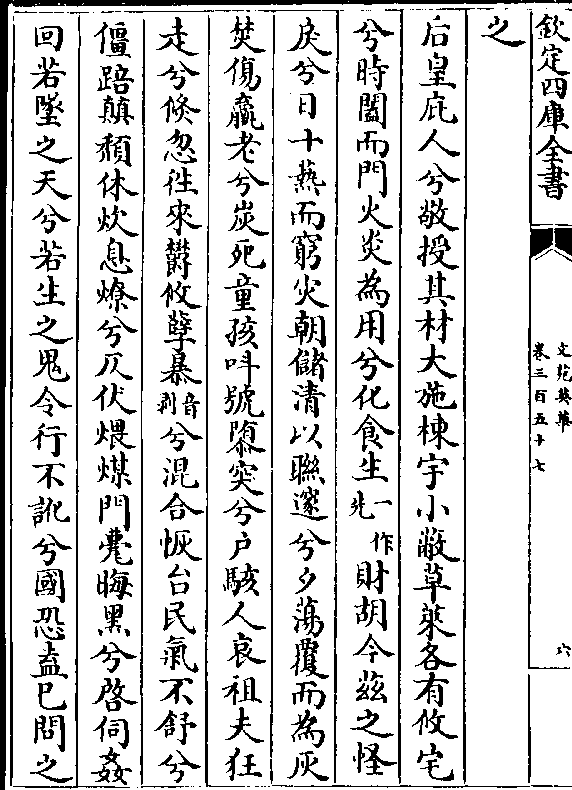 欽定四庫全書
文苑英華
卷三百五十七
六
之
后皇庇人兮敬授其材大施棟宇小蔽草萊各有攸宅
兮時闔而門火炎為用兮化食生一作兆財胡今茲之怪
戾兮日十爇而窮災朝儲清以聯邃兮夕蕩覆而為灰
焚傷羸老兮炭死童孩呌號隳突兮户駭人哀祖夫狂
走兮倐忽徃來欝攸孽暴音剥兮混合恢台民氣不舒兮
僵踣顛頽休炊息燎兮仄伏煨煤門甍晦黑兮啓伺姦
回若墜之天兮若生之鬼令行不訛兮國恐盍已問之